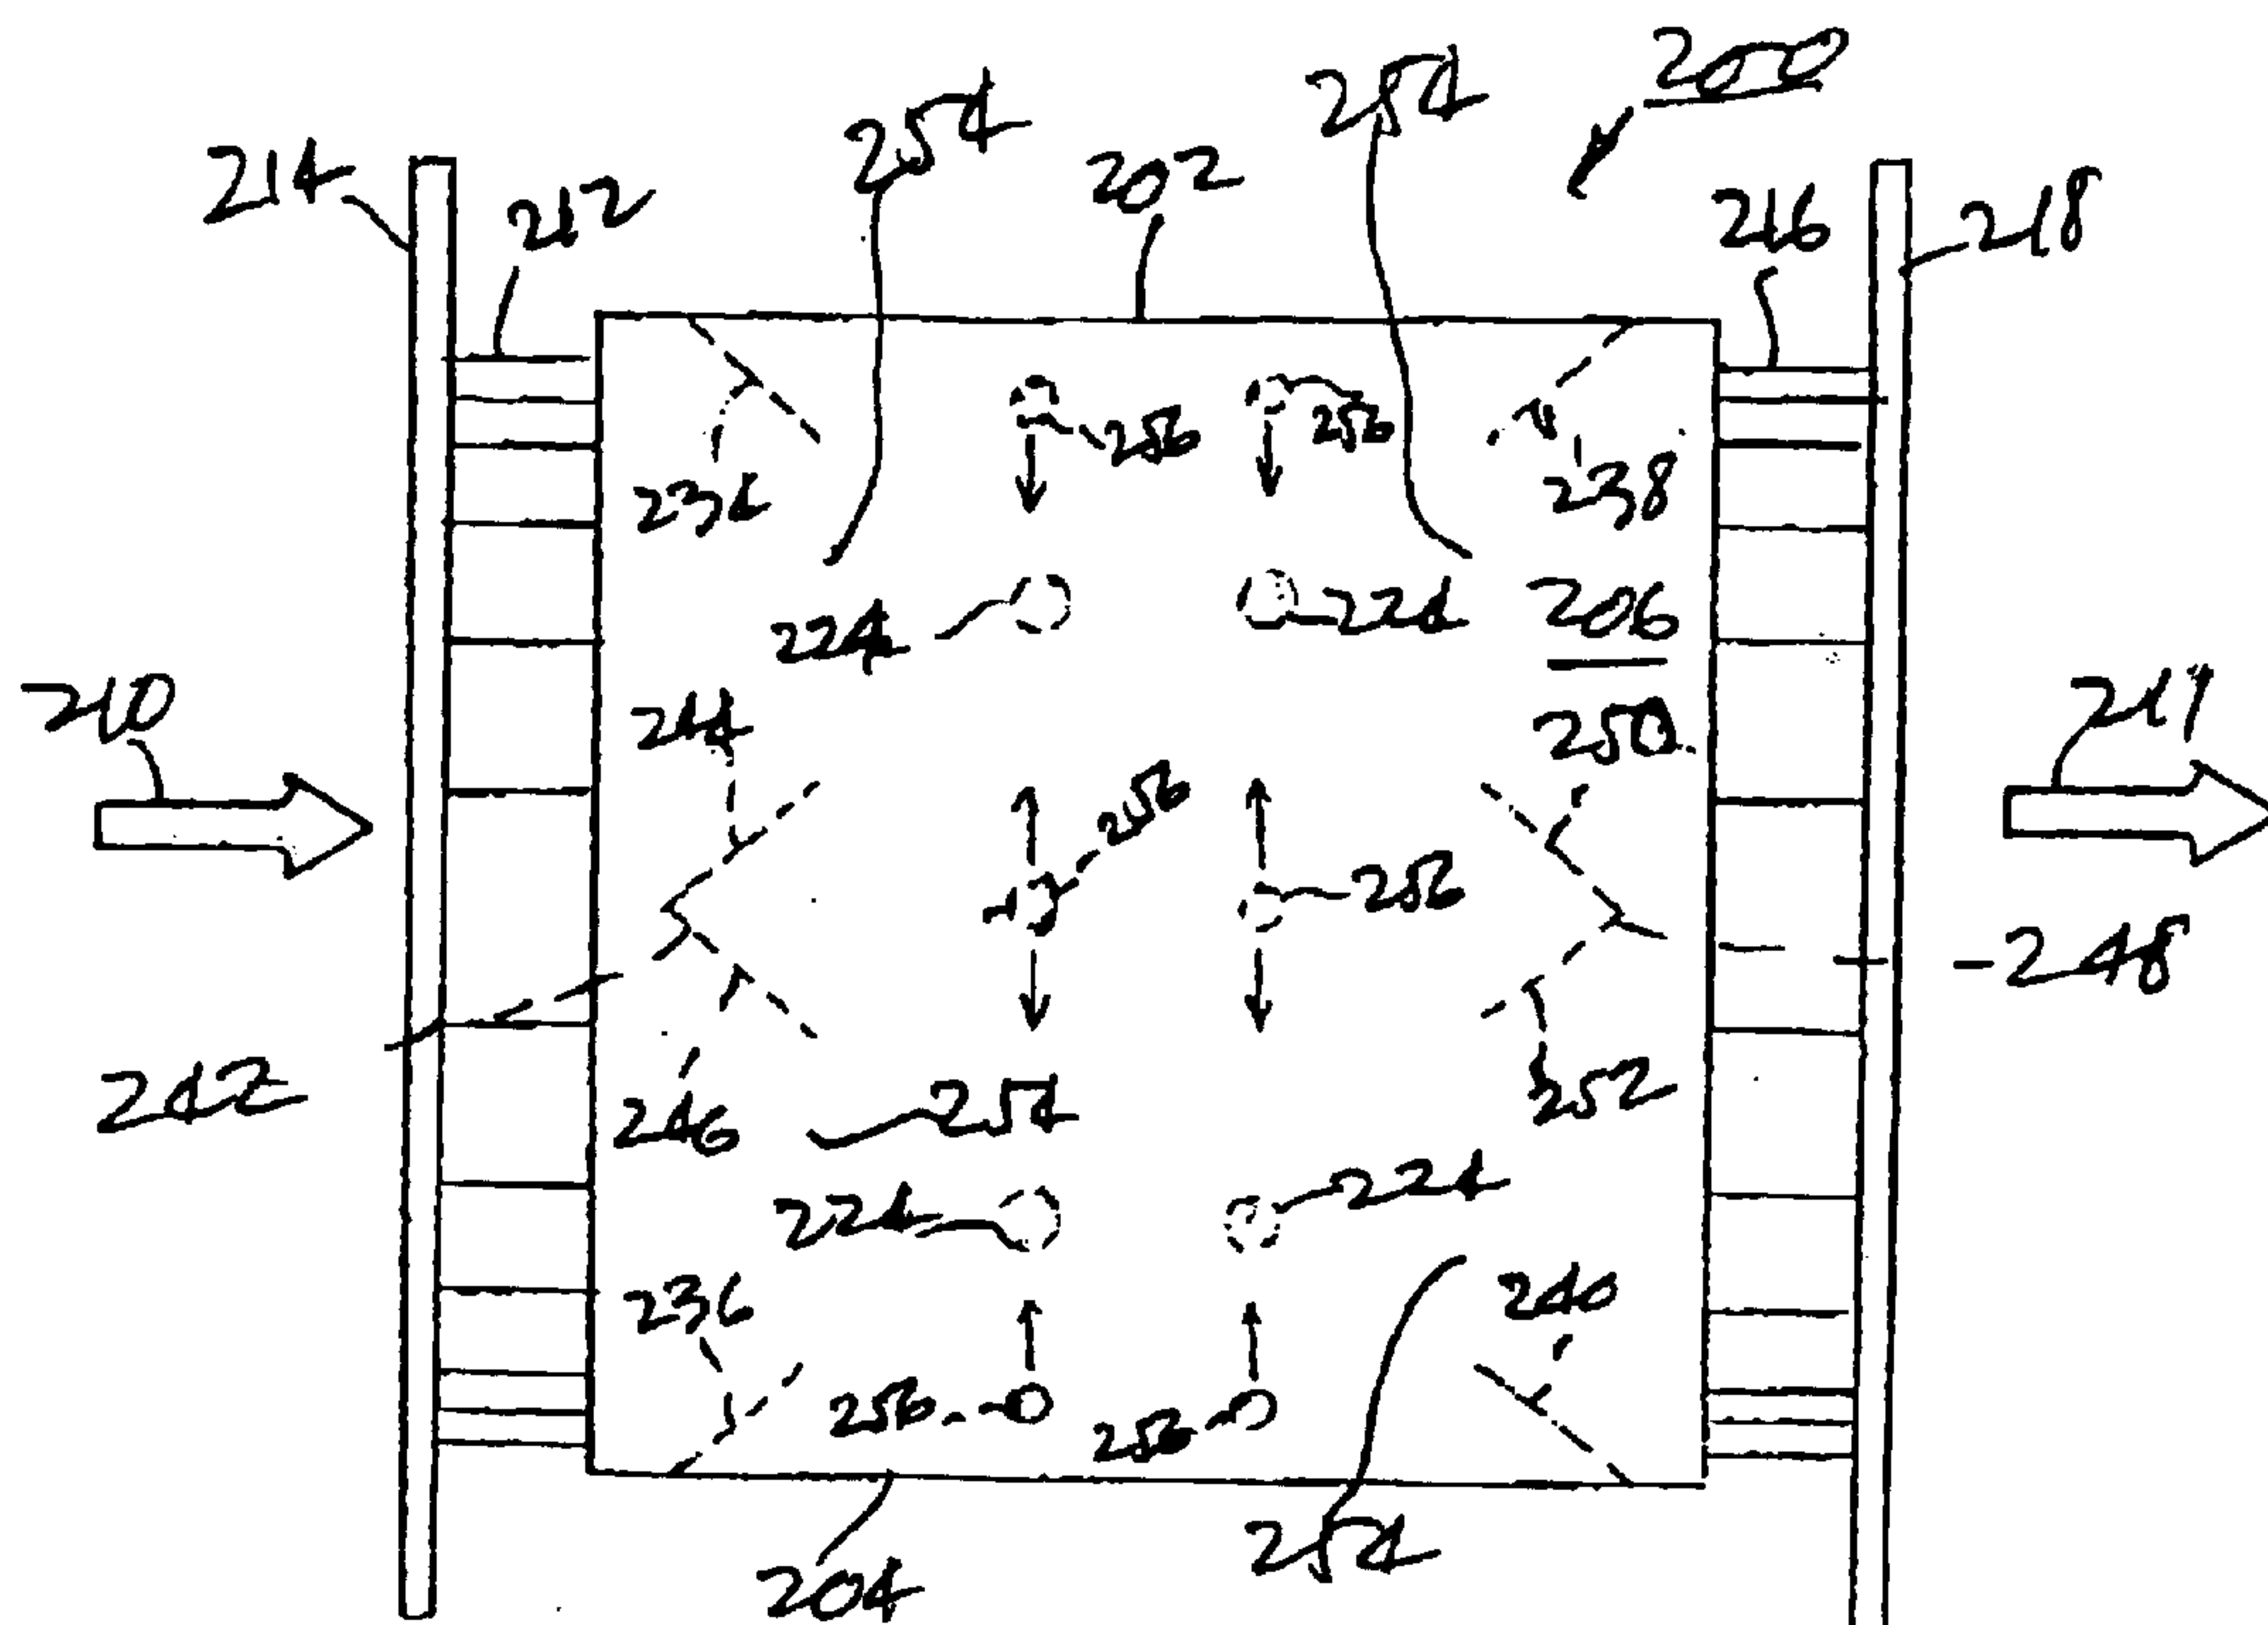 200
254
254
214
212
202
216
218
256
256
236
238
224
224
206
210
244
250
219
256
256
248
242
246
254
252
224
224
236
240
256
256
204
254